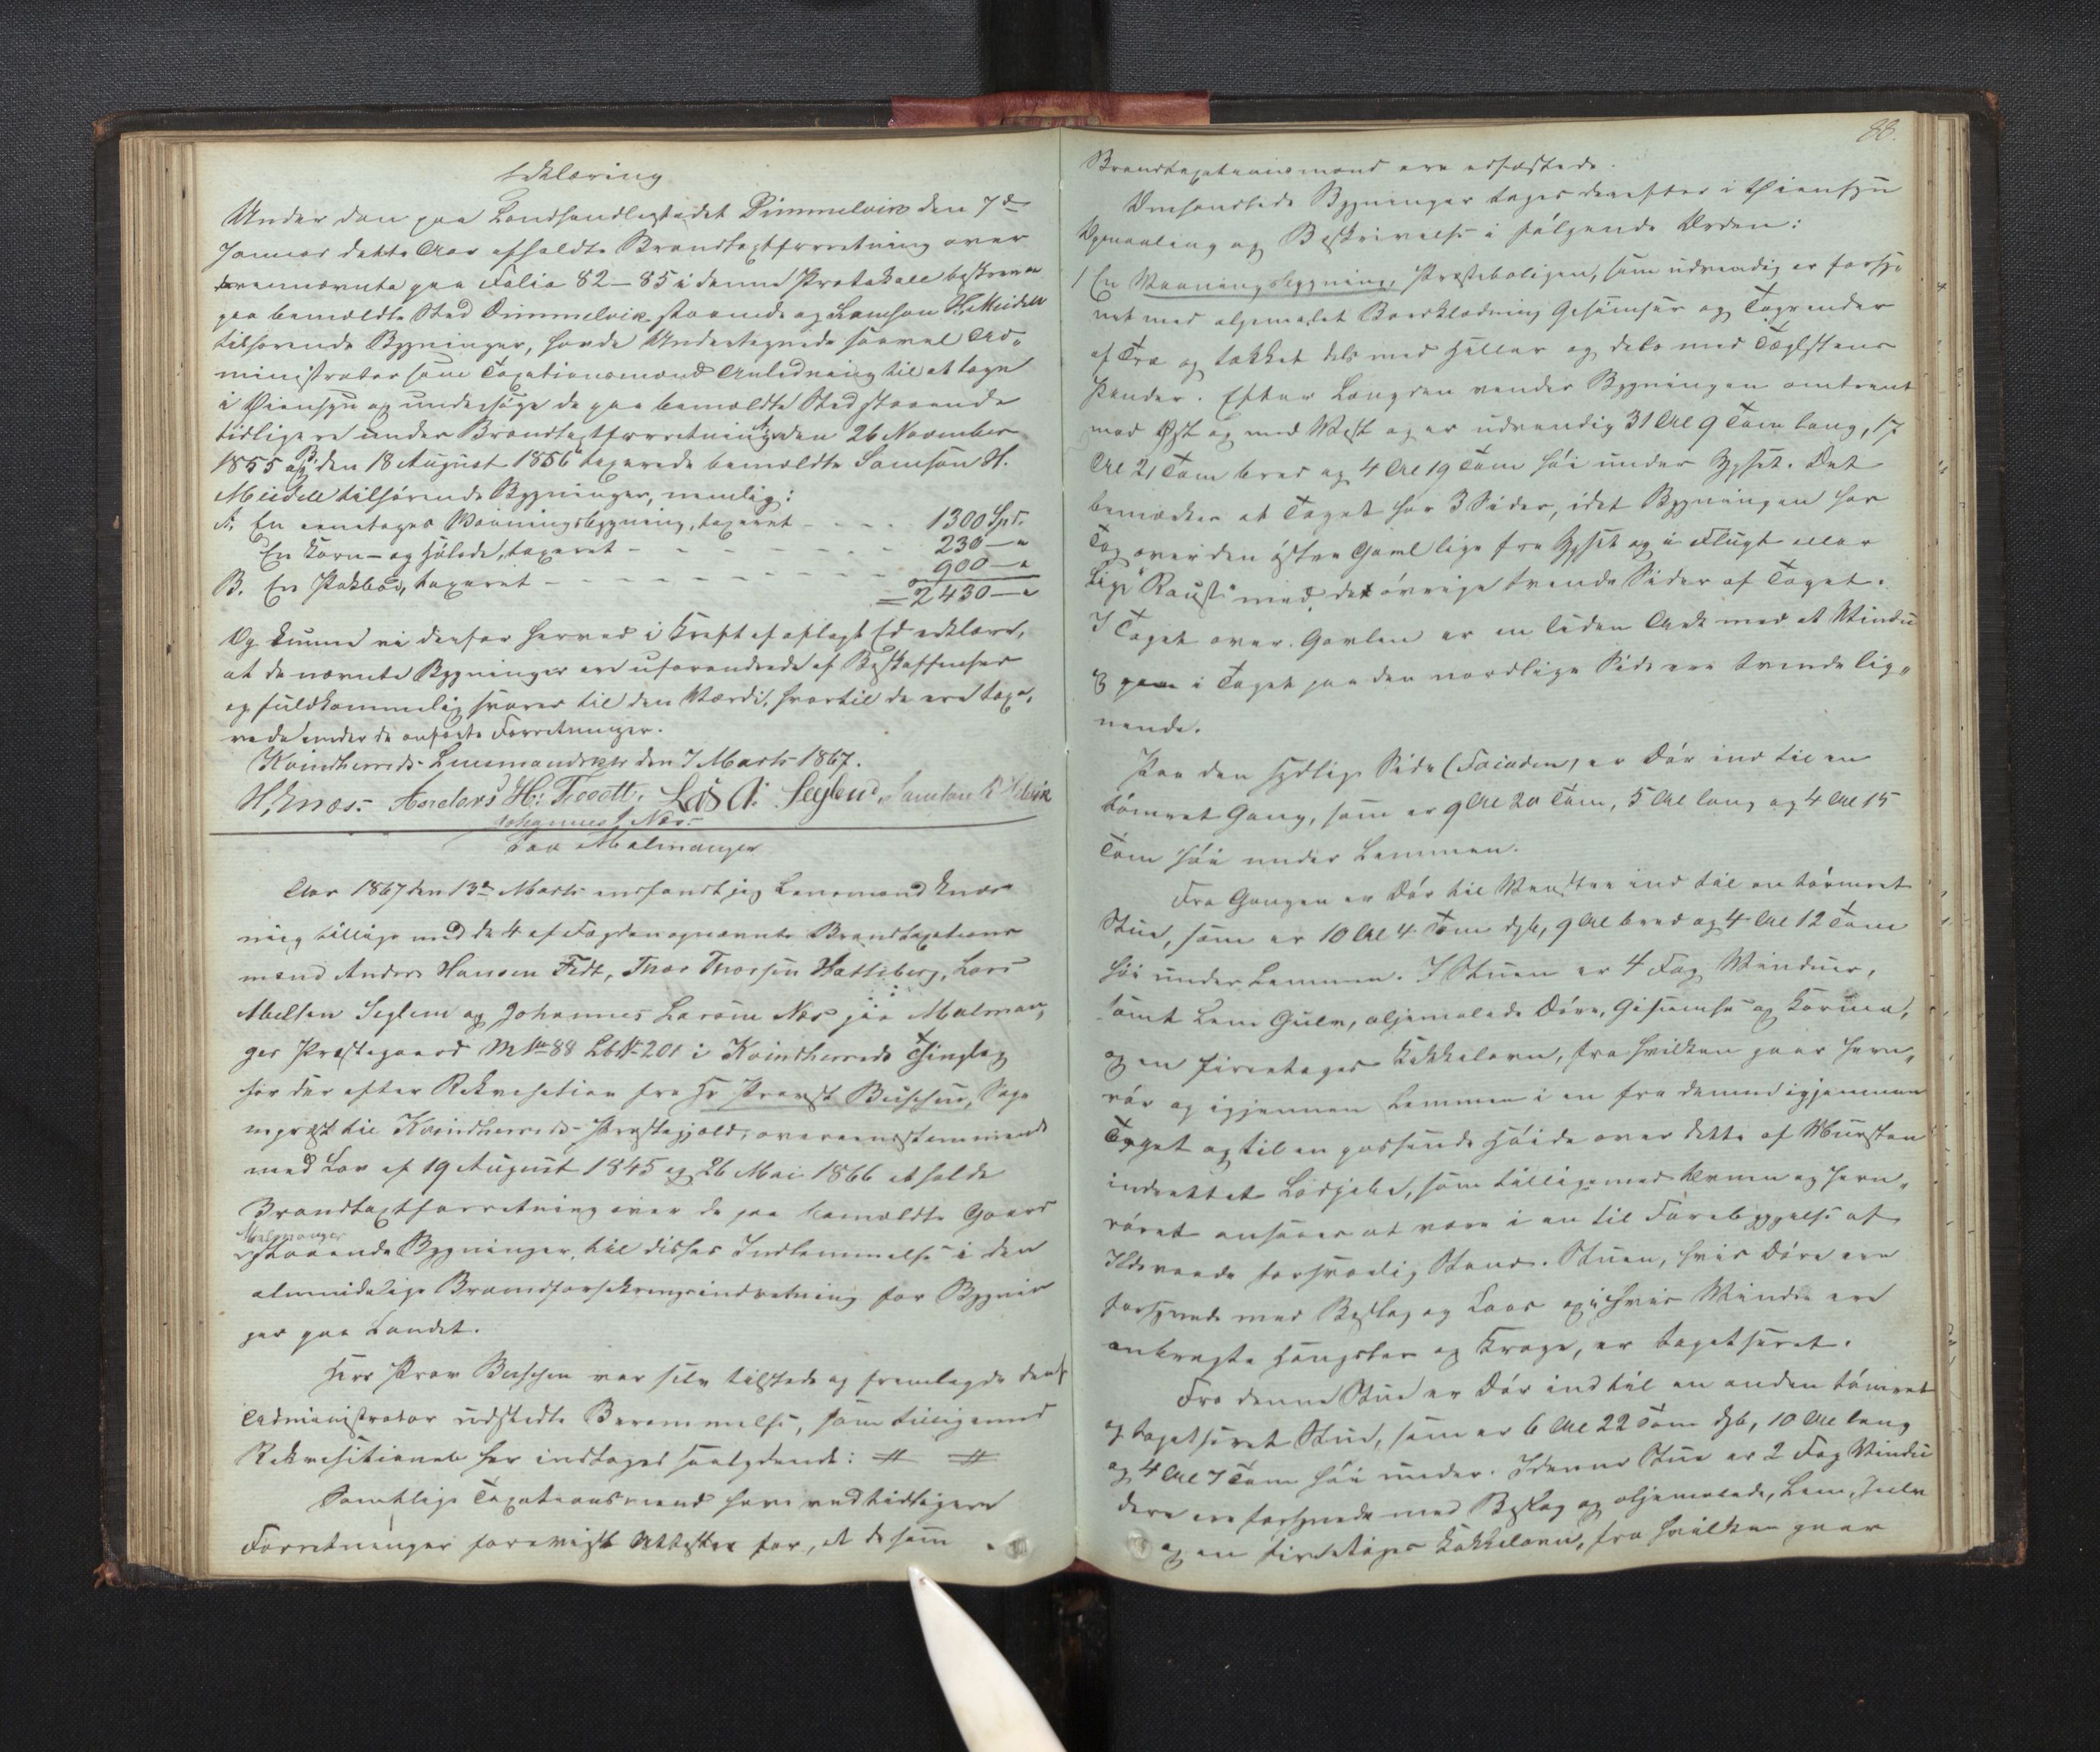 Erklæring
Under den paa Landhandlestedet Dimmelvik den 7de
Januar dette Aar afholdte Brandtaxtforretning over
de nævnte paa Folio 82-85 i denne Protokoll beskrevne
paa bemeldte Sted Dimmelvik staaende og Samson H. Meidell
tilhørende Bygninger, havde Undertegnede saavel Ad-
ministrator som Taxationsmænd Anledning til at tage
i Øiensyn og undersøge de paa bemeldte Sted staaende
tidligere under Brandtaxtforretning A, den 26 November
1855 og B, den 18 August 1856 taxerede bemeldte Samson H.
Meidell tilhørende Bygninger, nemlig:
A. En eenetages Vaaningsbygning, taxeret - - - - 1300 Spd.
En Korn- og Hølade, taxeret - - - - - - 230 — "
B. En Pakbod, taxeret - - - - - - - - 900 — "
= 2430 — "
Og kunne vi derfor herved i Kraft af aflagt Ed erklære,
at de nævnte Bygninger ere uforandrede af Beskaffenhed
og fuldkommelig svarer til den Værdi, hvortil de ere taxe-
rede under de anførte Forretninger.
Kvindherreds Lensmandspst den 7 Marts 1867.
H. Knœs. Anders H: Tveött. Lars A: Seglem,
Johannes L Næs
Paa Malmanger
Aar 1867 den 13de Marts indfandt jeg Lensmand Knœs
mig tillige med de 4 af Fogden opnævnte Brandtaxations
mænd Anders Hansen Fedt, Thor Thorsen Hatteberg, Lars
Abelsen Seglem og Johannes Larsen Næs paa Malman-
ger Præstegaard M No 88 Lb No 201 i Kvindherreds Thinglag
for der efter Rekvisition fra Hr Provst Buschen, Sog-
nepræst til Kvindherreds Præstegjeld, overeensstemmende
med Lov af 19 August 1845 og 26 Mai 1866 at holde
Brandtaxtforretning over de paa bemeldte Gaard
Malmanger
staaende Bygninger til disses Indlemmelse i den
almindelige Brandforsikringsindretning for Bygnin
ger paa Landet.
Herr Provst Buschen var selv tilstede og fremlagde den af
Administrator udstedte Berammelse, som tilligemed
Rekvisitionen her indtages saalydende: # #
Samtlige Taxationsmænd have ved tidligere
Forretninger foreviist Attester for, at de som
88.
Brandtaxationsmænd ere edfæstede.
Omhandlede Bygninger toges derefter i Øiensyn
Opmaaling og Beskrivelse i følgende Orden:
1 En Vaaningsbygning, Præsteboligen, som udvendig er forsy-
net med oljemalet Bordklædning Gesimser og Tagrender
af Træ og tækket dels med Heller og dels med Taglstens
Pander. Efter Længden vender Bygningen omtrent
mod Øst og mod Vest og er udvendig 31 Al 9 Tom lang, 17
Al 21 Tom bred og 4 Al 19 Tom høi under Gesit. Det
bemærkes at Taget har 3 Sider, idet Bygningen har
Tag over den østre Gavl lige fra Gesit og i Flugt eller
lige "Raust" med det øvrige tvende Sider af Taget.
I Taget over Gavlen er en liden Ark med et Vindu
og i Taget paa den nordlige Side ere tvende lig-
nende.
Paa den sydlige Side (Facaden) er Dør ind til en
tømret Gang, som er 9 Al 20 Tom, 5 Al lang og 4 Al 15
Tom høi under Lemmen.
Fra Gangen er Dør til Venstre ind til en tømret
Stue, som er 10 Al 4 Tom dyb, 9 Al bred og 4 Al 12 Tom
høi under Lemmen. I Stuen er 4 Fag Vinduer,
samt Lem Gulv, oljemalede Døre, Gesimse og Karme,
og en fireetages Kakkelovn, fra hvilken gaar Jern-
rør og igjennem Lemmen i en fra denne igjennem
Taget og til en passende Høide over dette af Mursten
indrettet Lodpibe, som tilligemed Ovnen og Jern-
røret ansaaes at være i en til Forebyggelse af
Ildsvaade forsvarlig Stand. Stuen, hvis Døre ere
forsynede med Beslag og Laas og i hvis Vindue ere
anbragte Hængsler og Kroge, er tapetseret.
Fra denne Stue er Dør ind til en anden tømret
og tapetseret Stue, som er 6 Al 22 Tom dyb, 10 Al lang
og 4 Al 7 Tom høi under. I denne Stue er 2 Fag Vindu
Døre ere forsynede med Beslag og oljemalede, Lem, Gulv
og en fireetages Kakkelovn, fra hvilken gaar